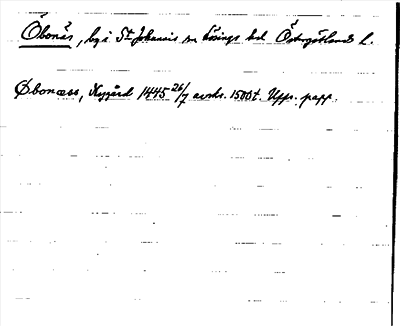 Öbonäs, by i St Johannis sn Lösings hd Östergötlands L.
Øbonæss, Nygård 1445 26/7 avskr. 1500t. Upps. papp.